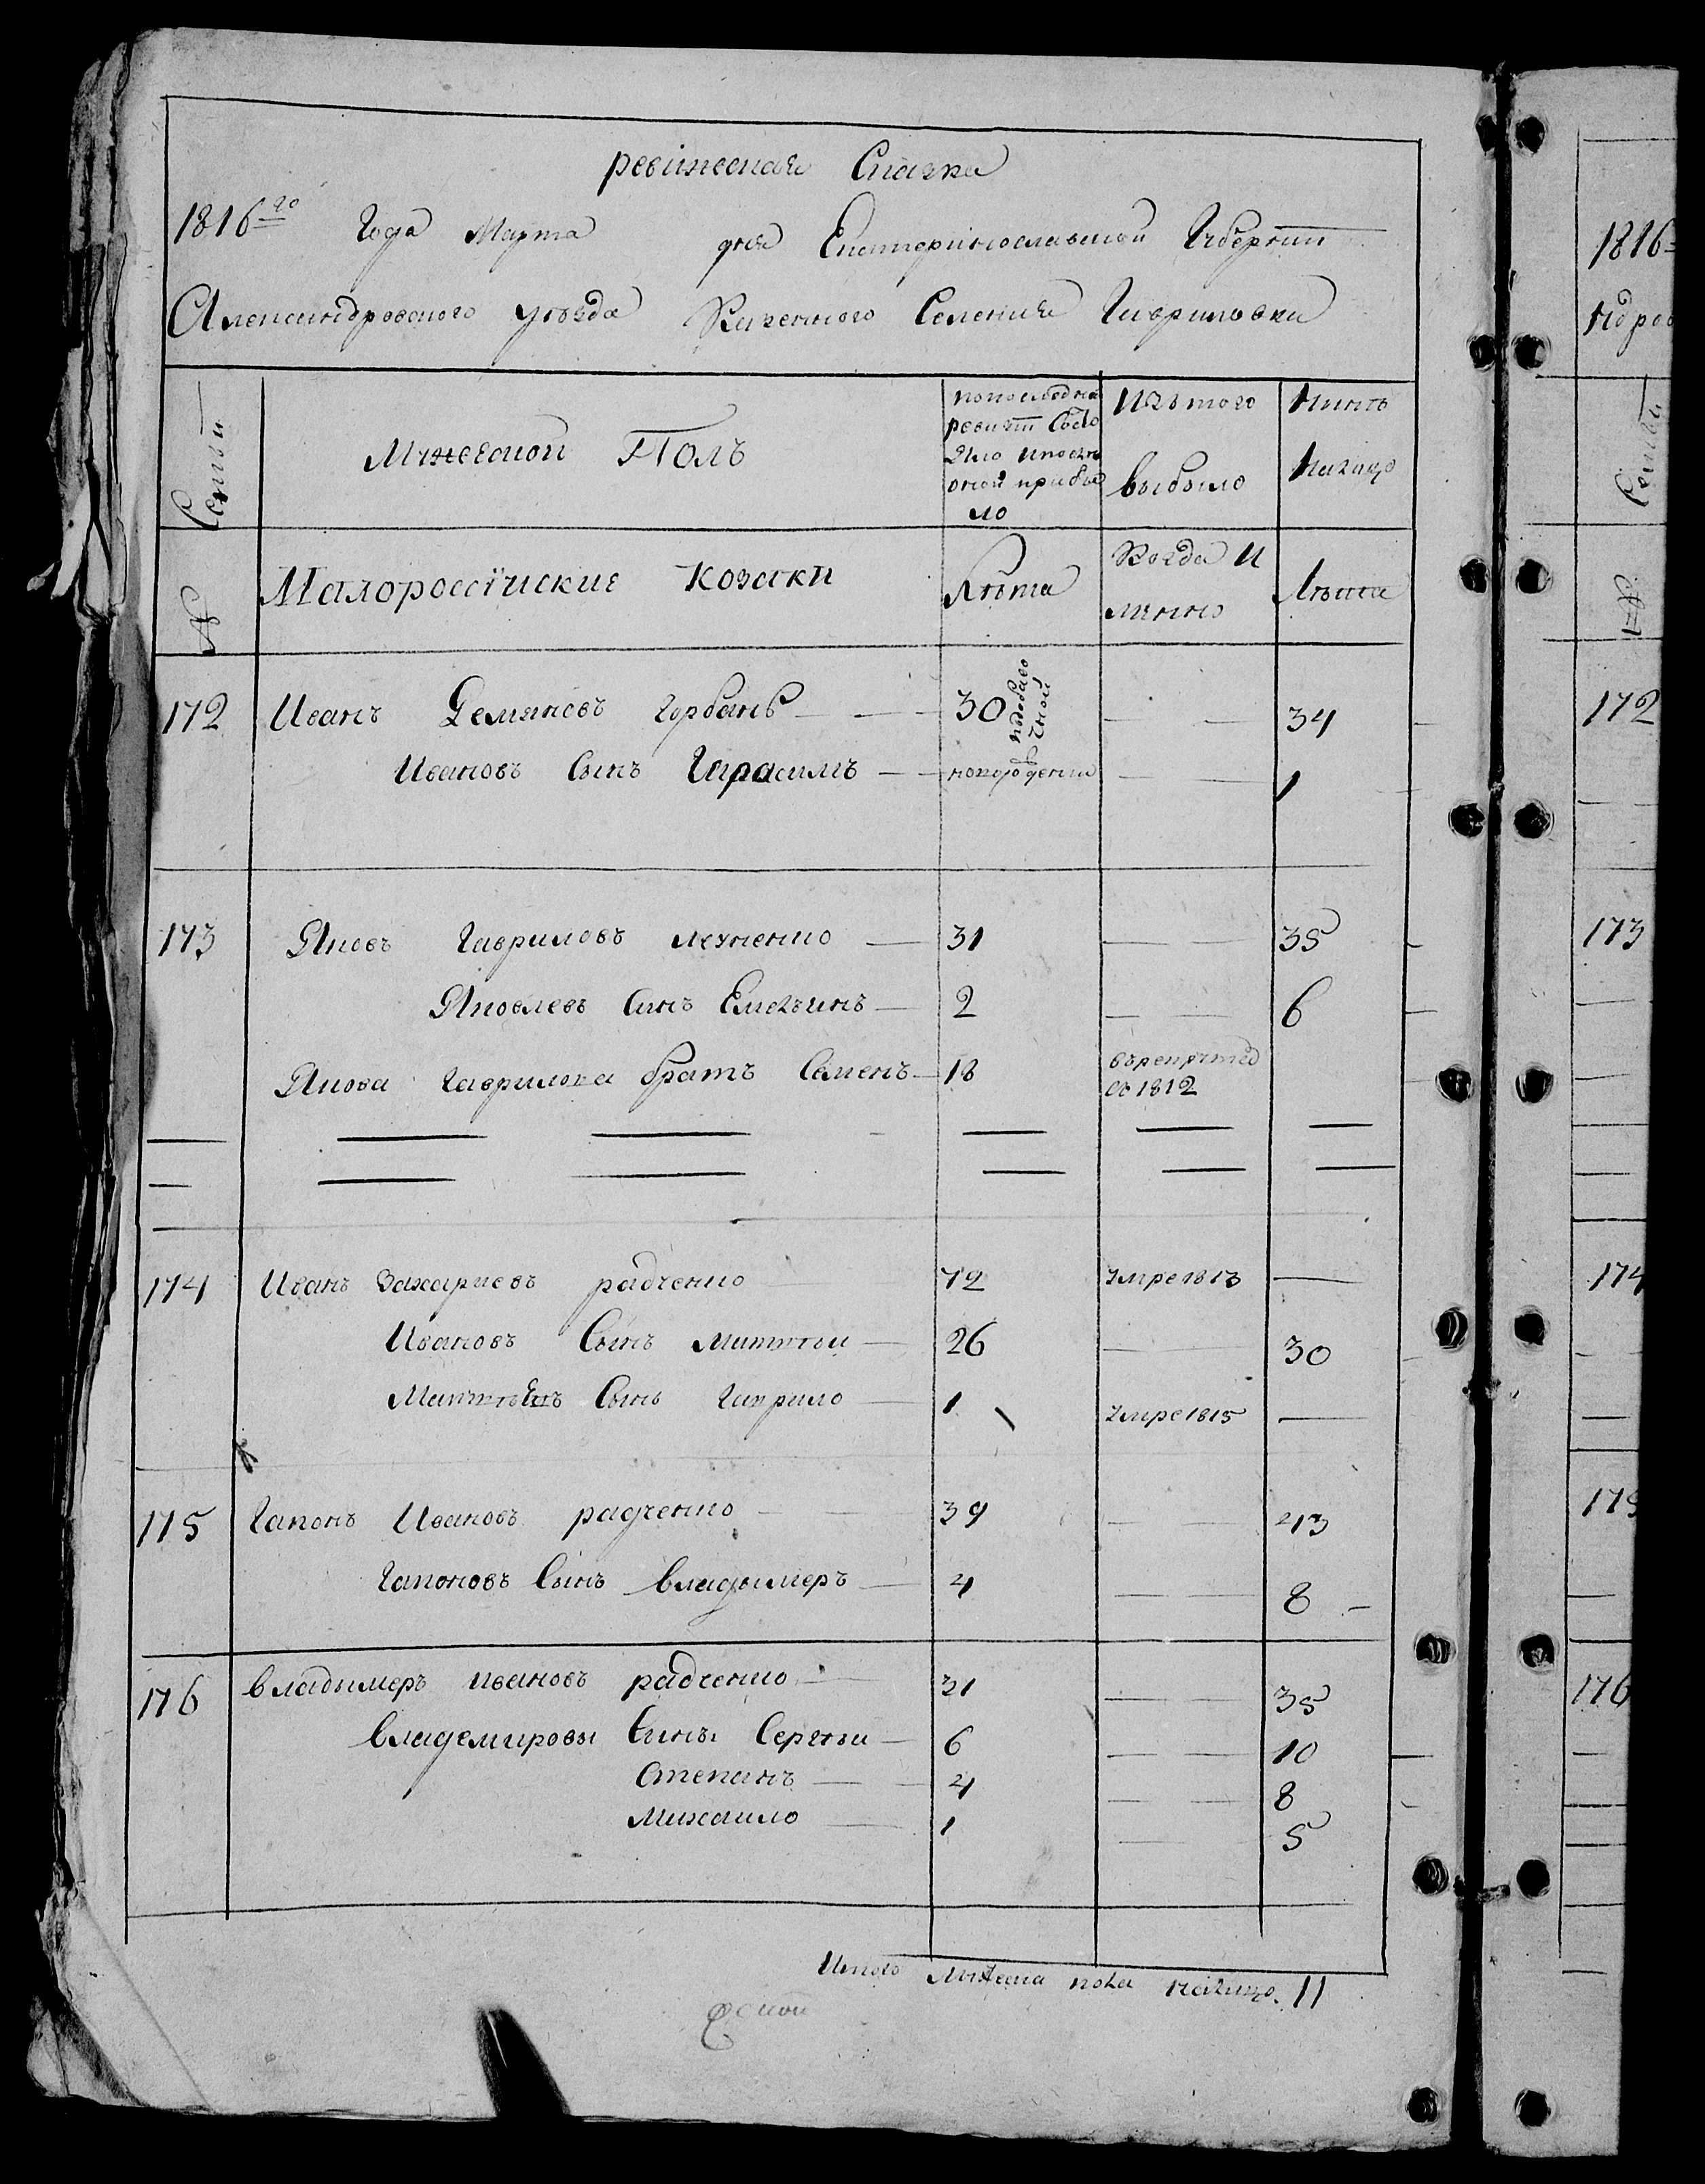 ревижская Сказка
1816го Года Марта дня Екатеринославской Губернии
Александровского уезда Казенного Селения Гавриловки
Семьи
Мужеской Полъ
по последней ревизии Состояло и после оной прибыло
Изъ того выбыло
Нынѣ налицо
№
Малороссїйские козаки
Лѣта
Когда и
Лѣта
172 Иванъ Демяновъ горбань 30 34
Ивановъ Сынъ Гарасимъ новорожденны 1
173 Яковъ Гавриловъ лехненко 31 35
Яковлевъ Синъ Емельянъ 2 6
Якова Гаврилова братъ Семенъ 18 въ рекруты въ 1812
174 Иванъ Захариевъ радченко 72 Умре 1813
Ивановъ Сынъ Матвѣй 26 30
Матвѣевъ Сынъ Гаврило 1 Умре 1815
175 Гапонъ Ивановъ радченко 39 43
Гапоновъ Сынъ владымеръ 4 8
176 владымеръ ивановъ радченко 31 35
владемировы Сины Сергѣй 6 10
Степанъ 4 8
Михаило 1 5
Итого Мужеска пола налицо 11
1816
172
173
174
175
176